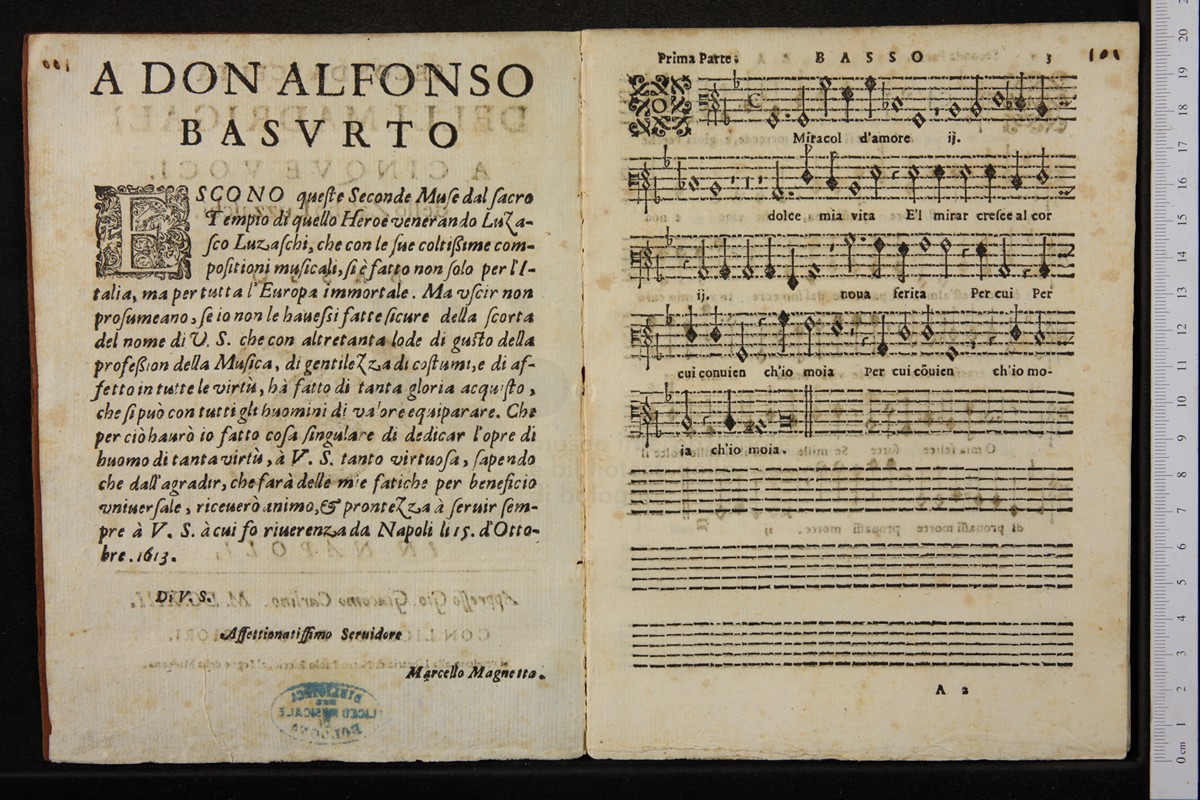 A DON ALFONSO
BASVRTO
ESCONO queſte Seconde Muſe dal ſacro
Tempio di quello Heroe venerando Luza-
ſco Luzaſchi, che con le ſue coltißime com-
poſitioni muſicali, ſi è fatto non ſolo per l'I-
talia, ma per tutta l'Europa immortale. Ma vſcir non
proſumeano, ſe io non le haueſsi fatte ſicure della ſcorta
del nome di V. S. che con altretanta lode di guſto della
profeſsion della Muſica, di gentilezza di coſtumi, e di af-
fetto in tutte le virtù, hà fatto di tanta gloria acquiſto,
che ſi può con tutti gli huomini di valore equiparare. Che
per ciò haurò io fatto coſa ſingulare di dedicar l'opre di
huomo di tanta virtù, à V. S. tanto virtuoſa, ſapendo
che dall'agradir, che farà delle mie fatiche per beneficio
vniuerſale, riceuerò animo, & prontezza à ſeruir ſem-
pre à V. S. à cui fo riuerenza da Napoli li 15. d'Otto-
bre. 1613.
Di V. S.
Affettionatiſſimo Seruidore
Marcello Magnetta.
Prima Parte. BASSO 3 101
Miracol d'amore ij.
dolce mia vita E'l mirar creſce al cor
ij. noua ferita Per cui Per
cui conuien ch'io moia Per cui cõuien ch'io mo-
ia ch'io moia.
A 2